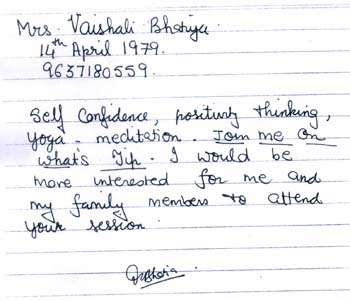 Mrs. Vaishali Bhotija.
14th April 1979.
9637180559.
Self Confidence, positivity thinking,
Yoga - meditation. Join me on
what's Up. I would be
more interested for me and
my family members to attend
your session.